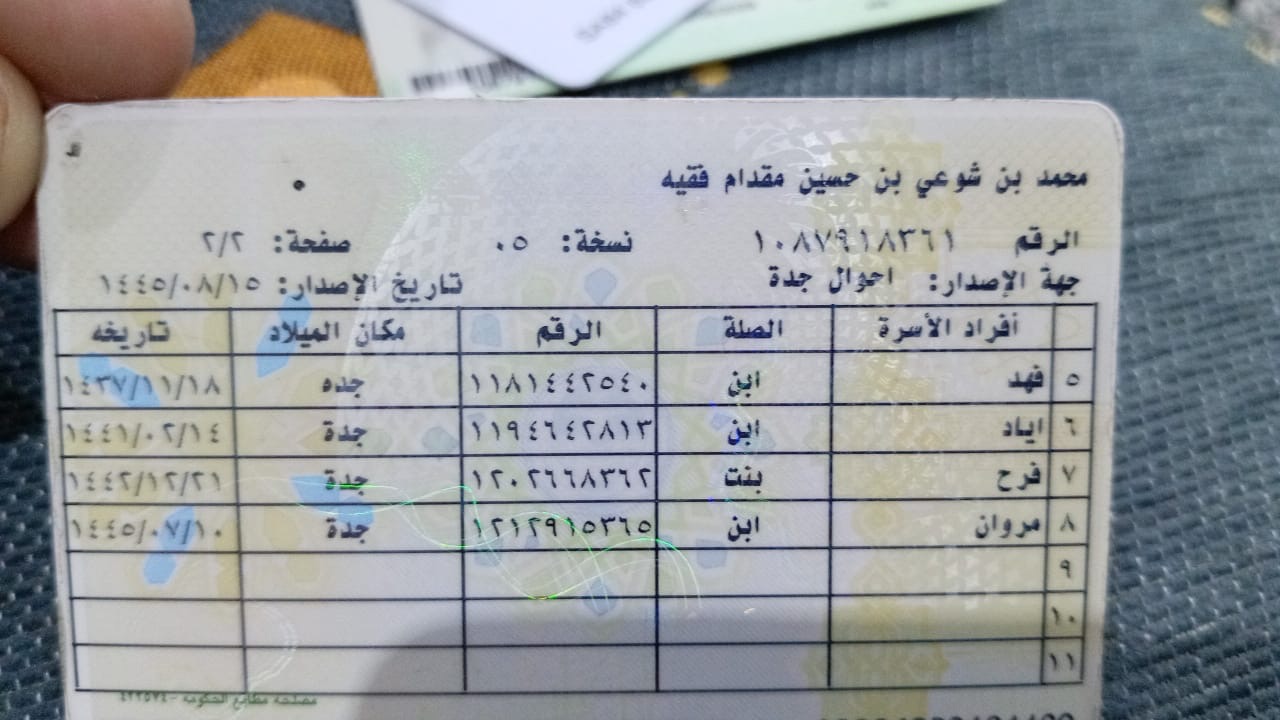 محمد بن شوعي بن حسين مقدام فقيه
الرقم ١٠٨٧٩١٨٣٦١ نسخة: ٠٥ صفحة: ٢/٢
جهة الإصدار: احوال جدة تاريخ الإصدار: ١٤٤٥/٠٨/١٥
أفراد الأسرة الصلة الرقم مكان الميلاد تاريخه
٥ فهد ابن ١١٨١٤٤٢٥٤٠ جده ١٤٣٧/١١/١٨
٦ اياد ابن ١١٩٤٦٤٢٨١٣ جدة ١٤٤١/٠٢/١٤
٧ فرح بنت ١٢٠٢٦٦٨٣٦٢ جدة ١٤٤٢/١٢/٢١
٨ مروان ابن ١٢١٢٩١٥٣٦٥ جدة ١٤٤٥/٠٧/١٠
٩
١٠
١١
مصلحة مطابع الحكومة - ٤٢٢٥٧٤